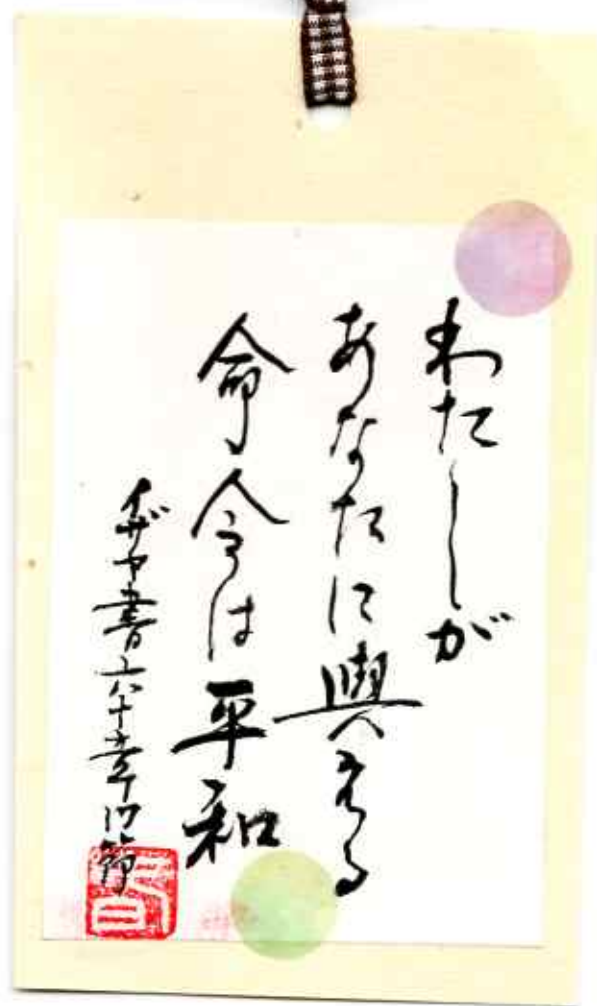 わたしが
あなたに與える
命令は平和
イザヤ書六十章17節